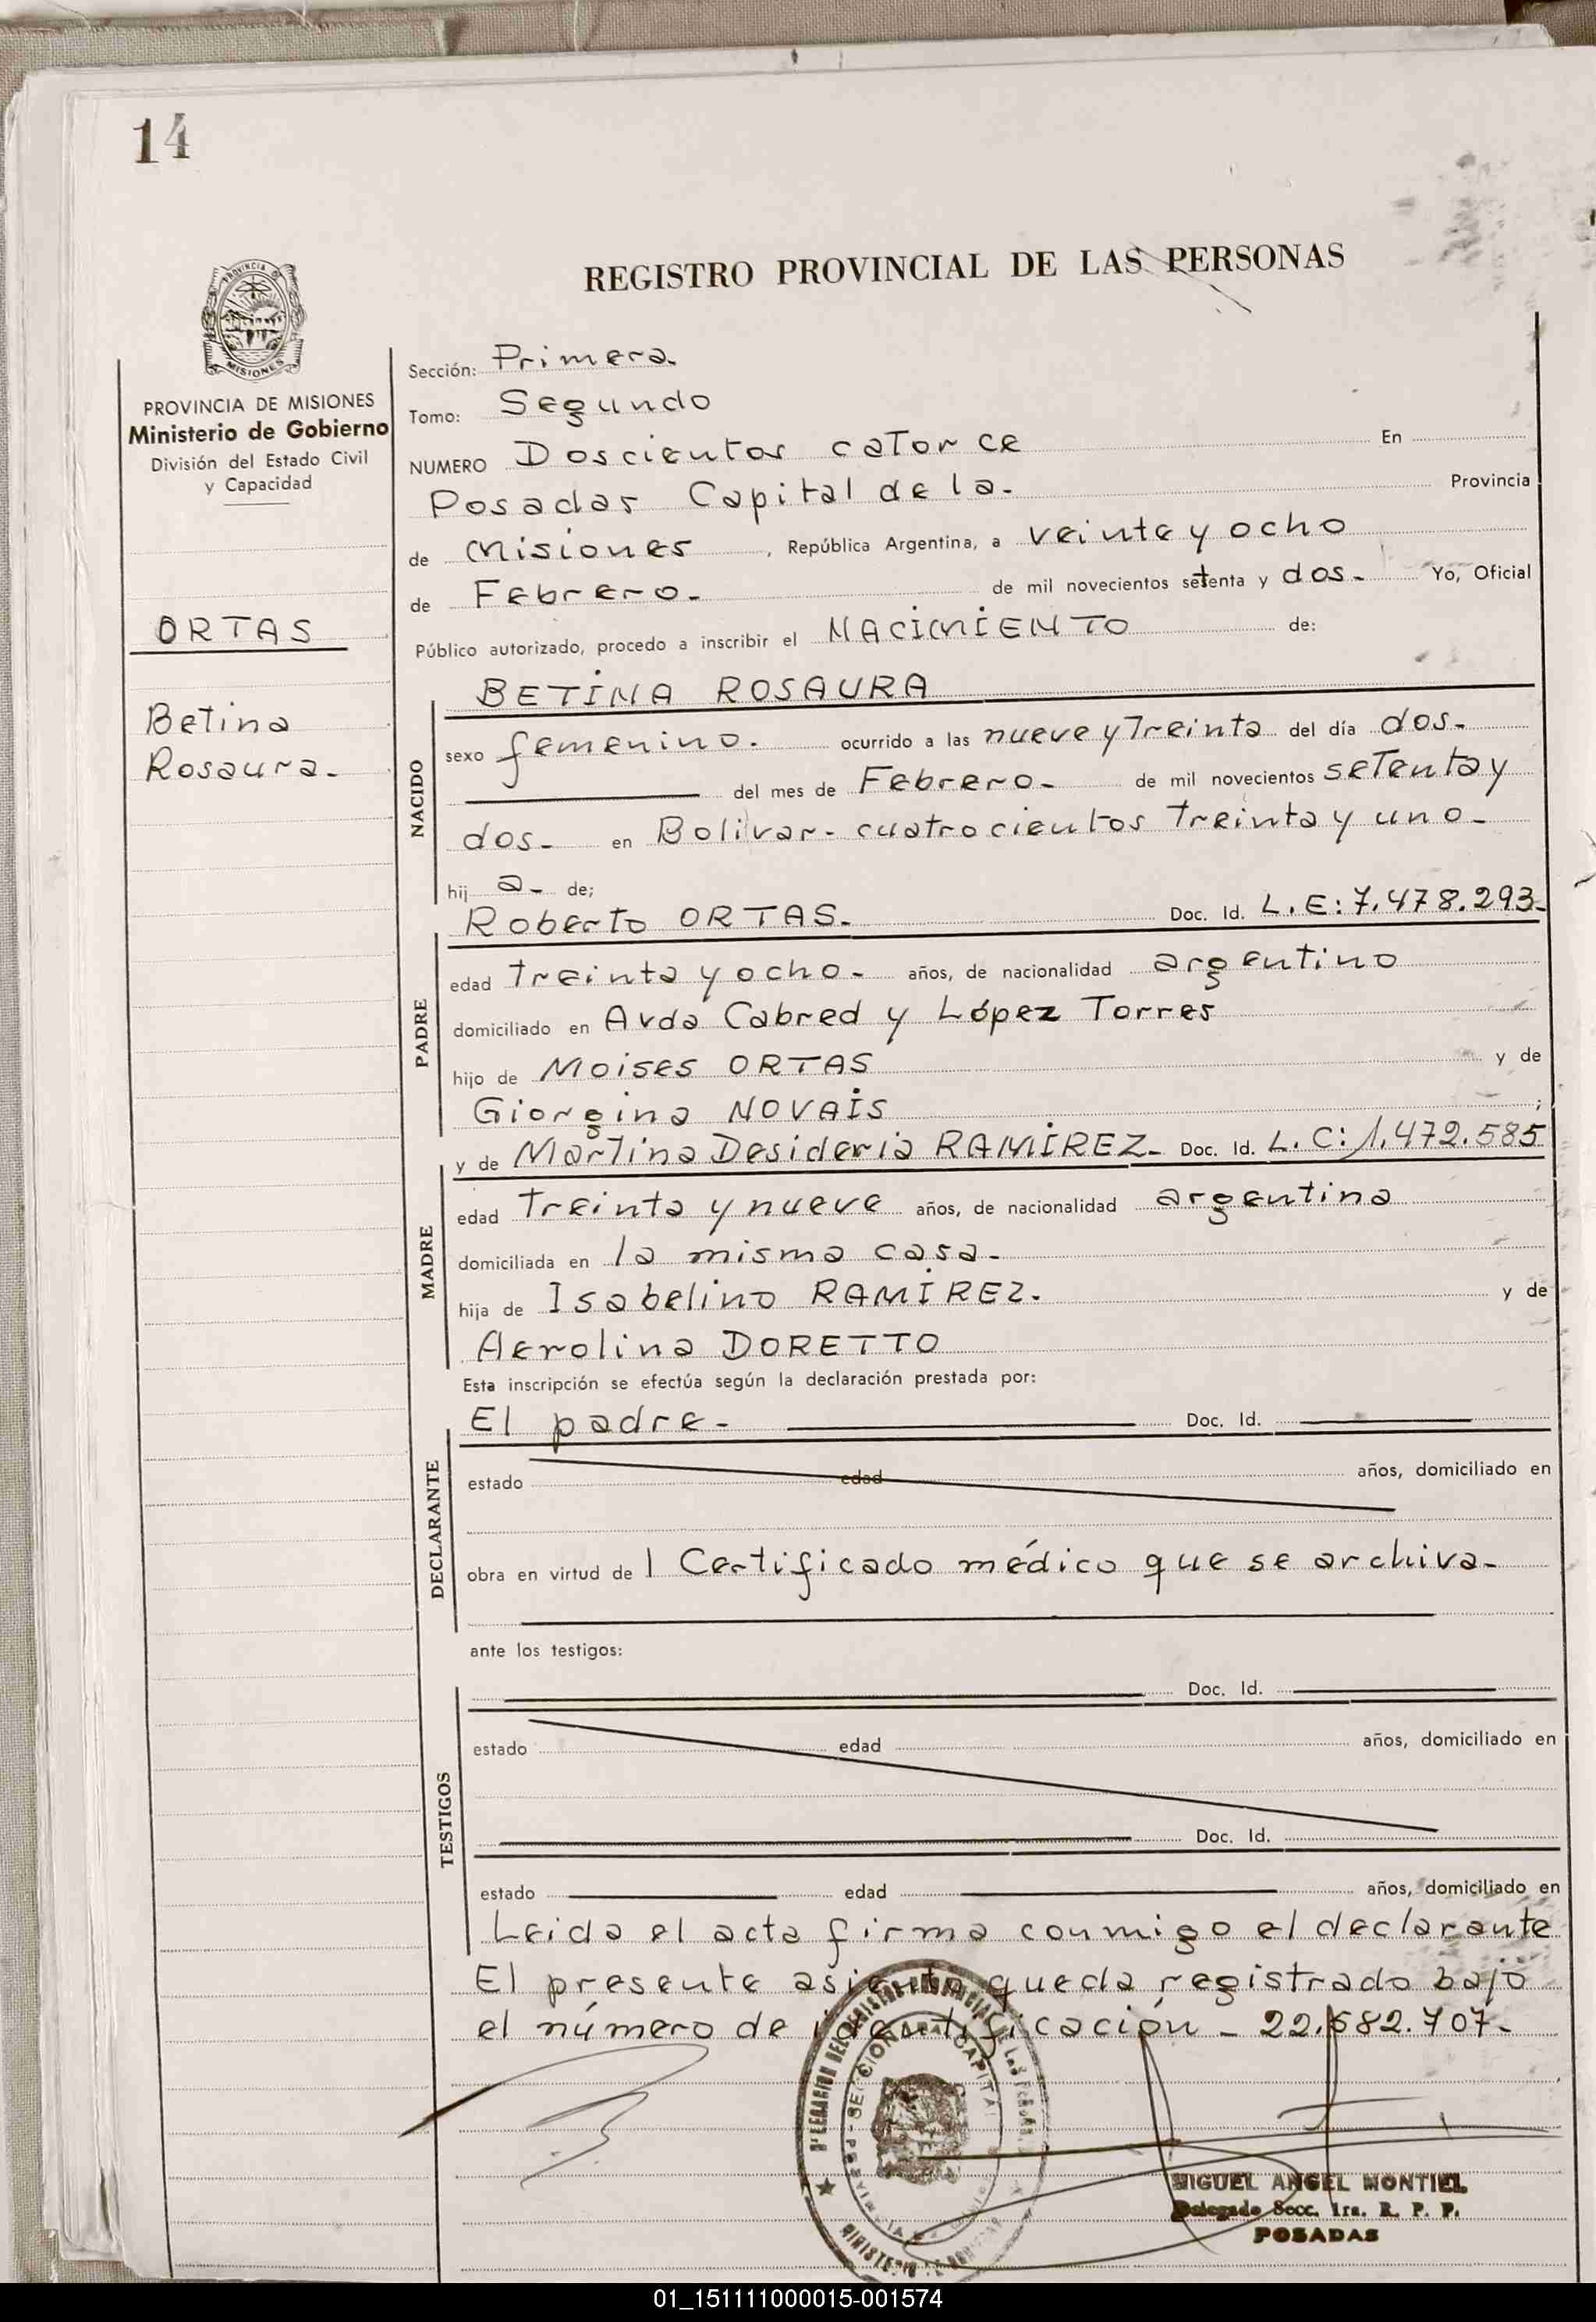 14
REGISTRO PROVINCIAL DE LAS PERSONAS
PROVINCIA DE MISIONES
Ministerio de Gobierno
División del Estado Civil
y Capacidad
ORTAS
Betina
Rosaura.
Sección: Primera.
Tomo: Segundo
NUMERO Doscientos catorce En
Posadas Capital de la. Provincia
de Misiones, República Argentina, a veinte y ocho
de Febrero. de mil novecientos setenta y dos. Yo, Oficial
Público autorizado, procedo a inscribir el NACIMIENTO de:
NACIDO
BETINA ROSAURA
sexo femenino. ocurrido a las nueve y Treinta del día dos.
del mes de Febrero. de mil novecientos seTenta y
dos. en Bolivar. cuatrocientos Treinta y uno.
hij a. de;
PADRE
Roberto ORTAS. Doc. Id. L.E: 7.478.293.
edad Treinta y ocho. años, de nacionalidad argentino
domiciliado en Avda Cabred y López Torres
hijo de Moises ORTAS y de
Giorgina NOVAIS;
MADRE
y de Martina Desideria RAMIREZ. Doc. Id. L.C: 1.472.585
edad Treinta y nueve años, de nacionalidad argentina
domiciliada en la misma casa.
hija de Isabelino RAMIREZ. y de
Aerolina DORETTO
Esta inscripción se efectúa según la declaración prestada por:
DECLARANTE
El padre. Doc. Id.
estado edad años, domiciliado en
obra en virtud de 1 Certificado médico que se archiva.
ante los testigos:
TESTIGOS
Doc. Id.
estado edad años, domiciliado en
Doc. Id.
estado edad años, domiciliado en
Leida el acta firma conmigo el declarante
El presente asiento queda registrado bajo
el número de identificación - 22.682.707.
MIGUEL ANGEL MONTIEL
Delegado Secc. 1ra. R. P. P.
POSADAS
01_151111000015-001574